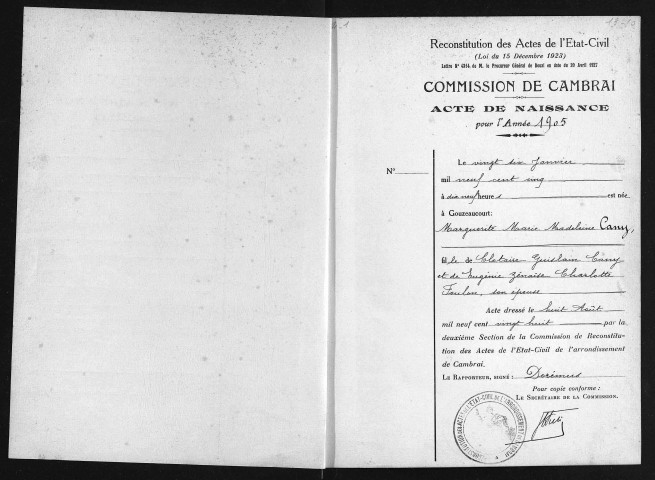 Reconstitution des Actes de l'Etat-Civil
(Loi du 15 Décembre 1923)
Lettre N° 4314 de M. le Procureur Général de Douai en date du 20 Avril 1927
COMMISSION DE CAMBRAI
ACTE DE NAISSANCE
pour l'Année 1905
N°
Le vingt six Janvier
mil neuf cent cinq
à dix neuf heures est née
à Gouzeaucourt:
Marguerite Marie Madeleine Cany,
fille de Clotaire Guislain Cany
et de Eugénie Zénaïse Charlotte
Foulon, son épouse
Acte dressé le huit Août
mil neuf cent vingt huit par la
deuxième Section de la Commission de Reconstitu-
tion des Actes de l'Etat-Civil de l'arrondissement
de Cambrai.
LE RAPPORTEUR, SIGNÉ :
Pour copie conforme :
LE SECRÉTAIRE DE LA COMMISSION.